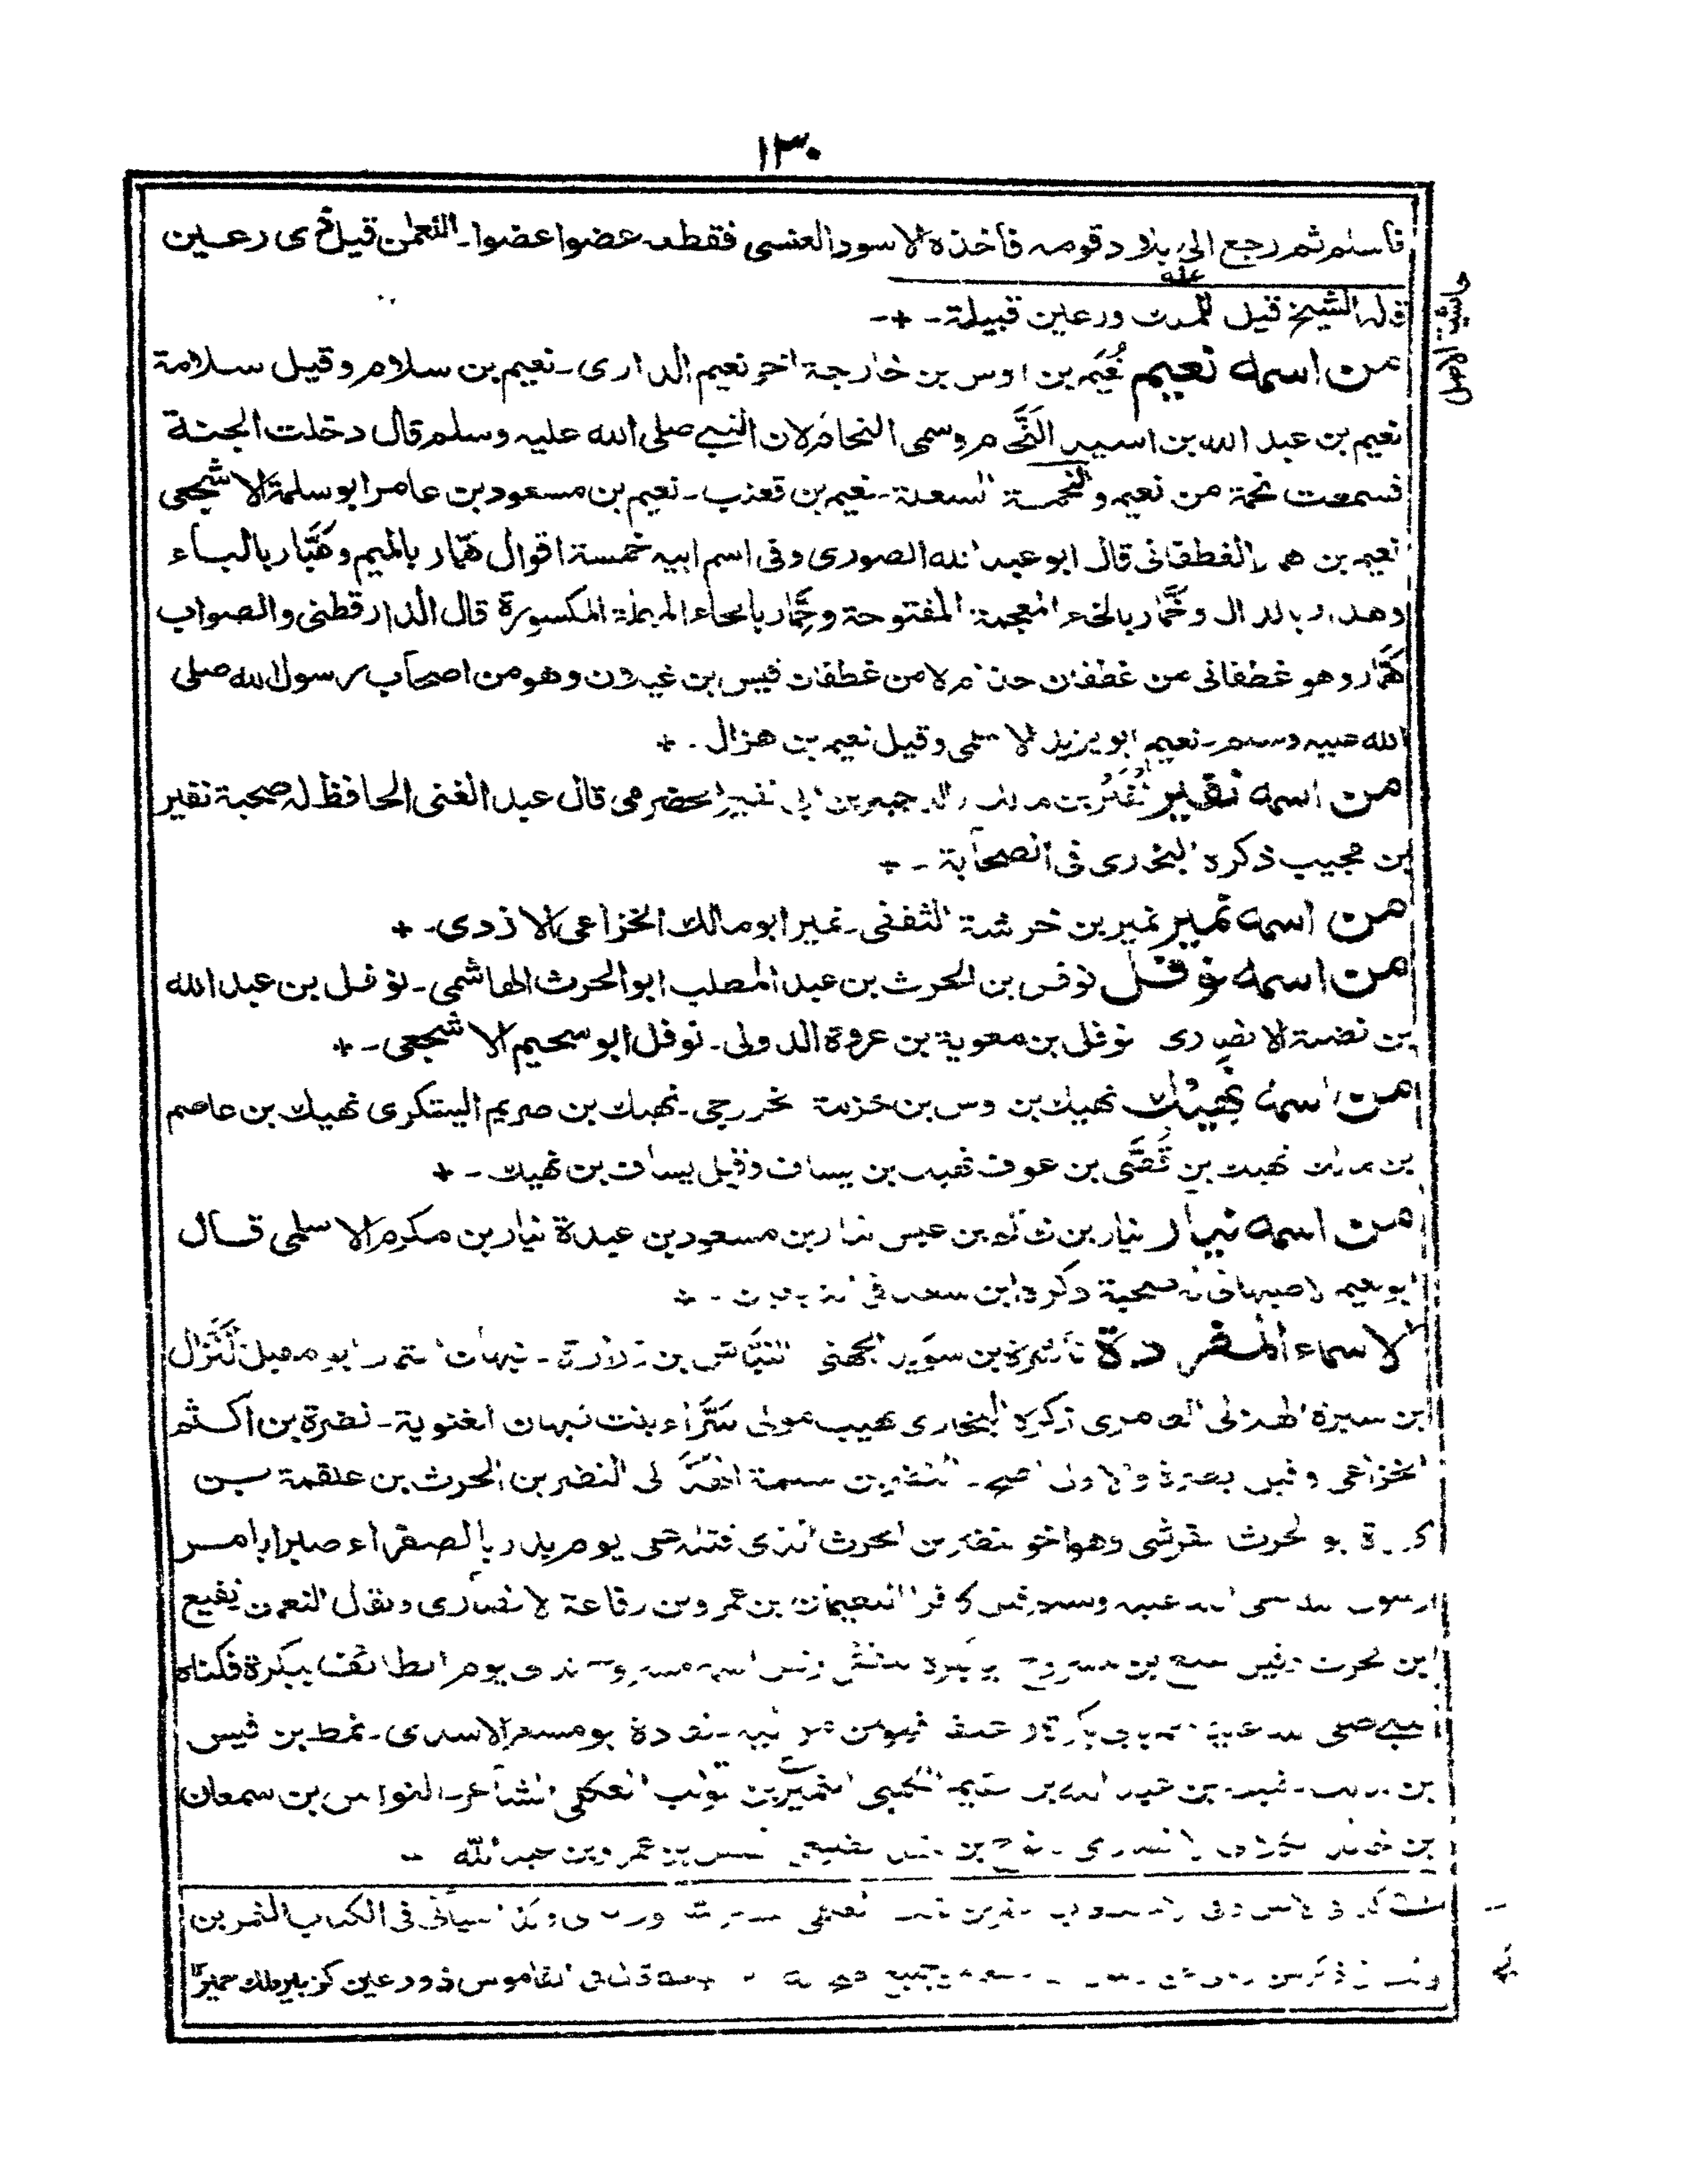 ١٣٠
فاسلم ثم رجع الى بلاد قومه فاخذه الاسود العنسى فقطعه عضوا عضوا۔ النعمٰن قيل ذى رعين
حاشية الاصل
قوله الشيخ قيل للمدن ورعين قبيلة۔+۔
من اسمه نعيم نُعَيم بن اوس بن خارجة اخو نعيم الدارى۔ نعيم بن سلام وقيل سلامة
نعيم بن عبد الله بن اسيد النَّحَّام وسمى النحام لان النبى صلى الله عليه وسلم قال دخلت الجنة
فسمعت نحمة من نعيم والنحمة السعلة۔ نعيم بن قعنب۔ نعيم بن مسعود بن عامر ابو سلمة الاشجعى
نعيم بن همار الغطفانى قال ابو عبد الله الصورى وفى اسم ابيه خمسة اقوال همّار بالميم وهَبَّار بالباء
وهدار بالدال وخَمَّار بالخاء المعجمة المفتوحة وحِمَّار بالحاء المهملة المكسورة قال الدارقطنى والصواب
هَمَّار وهو غطفانى من غطفان جذام لا من غطفان قيس بن غيلان وهو من اصحاب رسول الله صلى
الله عليه وسلم۔ نعيم ابو يزيد الاسلمى وقيل نعيم بن هزال۔+
من اسمه نفير نُفَير بن مالك والد جبير بن ابى نفير الحضرمى قال عبد الغنى الحافظ له صحبة نفير
بن مجيب ذكره البخارى فى الصحابة۔+
من اسمه نمير نمير بن خرشة الثقفى۔ نمير ابو مالك الخزاعى الازدى۔+
من اسمه نوفل نوفل بن الحرث بن عبد المطلب ابو الحرث الهاشمى۔ نوفل بن عبد الله
بن نضلة الانصارى نوفل بن معوية بن عروة الدولى۔ نوفل ابو سحيم الاشجعى۔+
من اسمه نهيك نهيك بن اوس بن خزمة الخزرجى۔ نهيك بن صريم اليشكرى نهيك بن عاصم
بن مالك نهيك بن قُصَّى بن عوف نهيك بن يساف وقيل يساف بن نهيك۔+
من اسمه نيار نيار بن ظالم بن عبس نيار بن مسعود بن عبدة نيار بن مكرم الاسلمى قال
ابو نعيم الاصبهانى له صحبة ذكره ابن سعد فى التابعين۔+
الاسماء المفردة ناشرة بن سويد الجهنى النبَّاش بن زرارة۔ نبهان التمار ابو مقبل النَّزَّال
ابن سبرة الهلالى العامرى ذكره البخارى نصيب مولى سَرَّاء بنت نبهان الغنوية۔ نضرة بن اكثم
الخزاعى وقيل بصرة والاول اصح۔ النضر بن سلمة الهذلى النضر بن الحرث بن علقمة بن
كلدة ابو الحرث القرشى وهو اخو النضر بن الحرث الذى قتله على يوم بدر بالصفراء صبرا بامر
رسول الله صلى الله عليه وسلم كافرا النعيمان بن عمرو بن رفاعة الانصارى ويقال النعمن نفيع
ابن الحرث وقيل نفيع بن مسروح ابو بكرة الثقفى وقيل اسمه مسروح تدلى يوم الطائف ببكرة فكناه
النبى صلى الله عليه وسلم بابى بكرة نقادة ابو مسعر الاسدى۔ نمط بن قيس
بن مالك۔ نميلة بن عبد الله بن فقيم الكلبى النمر بن تولب العكلى الشاعر۔ النواس بن سمعان
بن خالد الكلابى الانصارى
سيأتى فى الكتاب النمر بن
القاموس ذو رعين كزبير ملك حمير